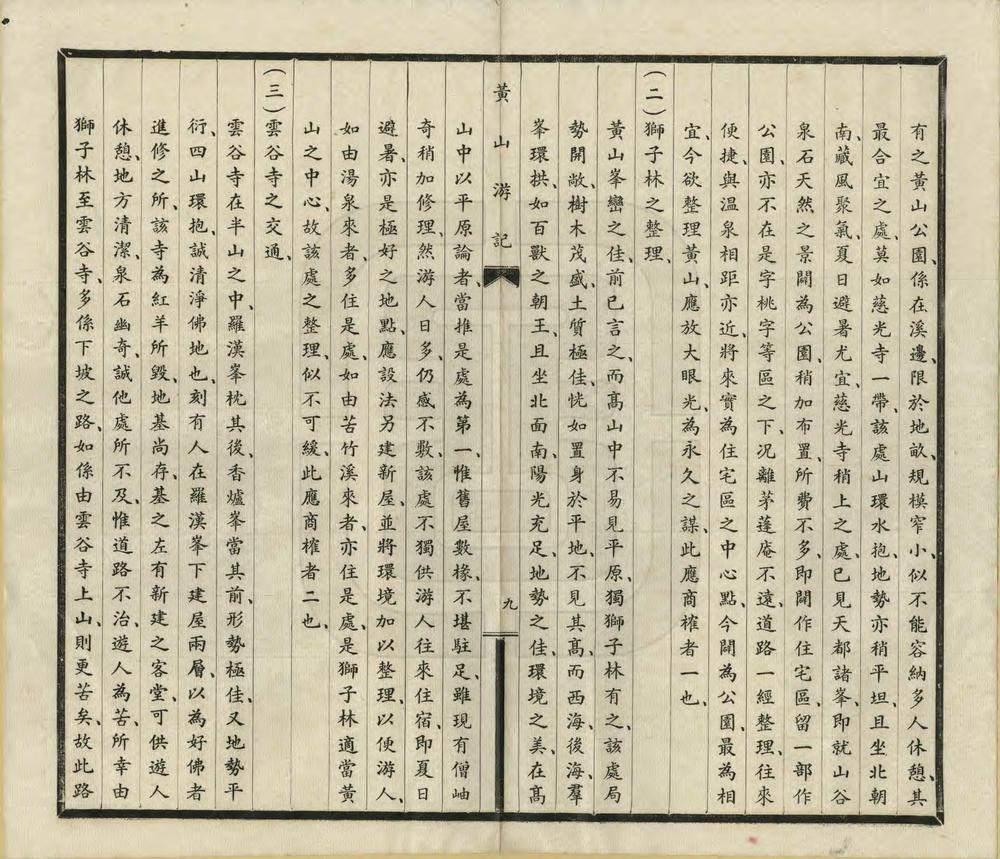 有之黃山公園、係在溪邊、限於地畝、規模窄小、似不能容納多人休憩、其
最合宜之處、莫如慈光寺一帶、該處山環水抱、地勢亦稍平坦、且坐北朝
南、藏風聚氣、夏日避暑尤宜、慈光寺稍上之處、已見天都諸峯、即就山谷
泉石天然之景、開為公園、稍加布置、所費不多、即開作住宅區、留一部作
公園、亦不在是字桃字等區之下、况離茅蓬庵不遠、道路一經整理、往來
便捷、與溫泉相距亦近、將來實為住宅區之中心點、今開為公園、最為相
宜、今欲整理黃山、應放大眼光、為永久之謀、此應商榷者一也、
(二)獅子林之整理、
黃山峯巒之佳、前已言之、而高山中不易見平原、獨獅子林有之、該處局
勢開敞、樹木茂盛、土質極佳、恍如置身於平地、不見其高、而西海、後海、羣
峯環拱、如百獸之朝王、且坐北面南、陽光充足、地勢之佳、環境之美、在高
黃山游記
九
山中以平原論者、當推是處為第一、惟舊屋數椽、不堪駐足、雖現有僧岫
奇稍加修理、然游人日多、仍感不敷、該處不獨供游人往來住宿、即夏日
避暑、亦是極好之地點、應設法另建新屋、並將環境加以整理、以便游人、
如由湯泉來者、多住是處、如由苦竹溪來者、亦住是處、是獅子林適當黃
山之中心、故該處之整理、似不可緩、此應商榷者二也、
(三)雲谷寺之交通、
雲谷寺在半山之中、羅漢峯枕其後、香爐峯當其前、形勢極佳、又地勢平
衍、四山環抱、誠清淨佛地也、刻有人在羅漢峯下建屋兩層、以為好佛者
進修之所、該寺為紅羊所毀、地基尚存、基之左有新建之客堂、可供遊人
休憩、地方清潔、泉石幽奇、誠他處所不及、惟道路不治、遊人為苦、所幸由
獅子林至雲谷寺、多係下坡之路、如係由雲谷寺上山、則更苦矣、故此路